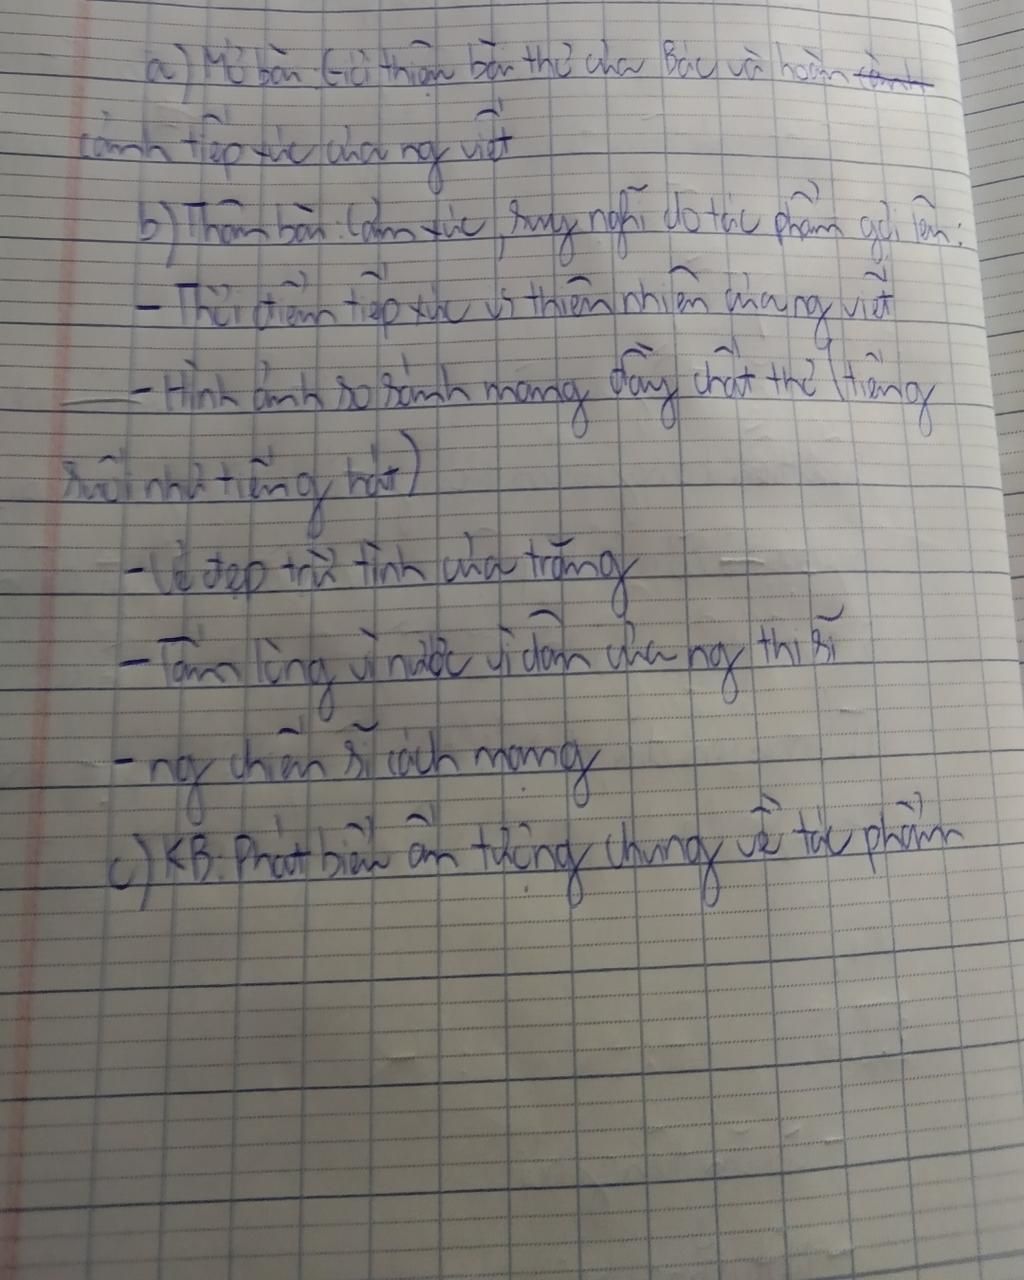 a) Mở bài: Giới thiệu bài thơ của Bác và hoàn cảnh
cảnh tiếp xúc của ng viết
b) Thân bài: Cảm xúc, suy nghĩ do tác phẩm gợi lên:
- Thời điểm tiếp xúc vs thiên nhiên của ng viết
- Hình ảnh so sánh mang đầy chất thơ (tiếng
suối như tiếng hát)
- Vẻ đẹp trữ tình của trăng
- Tấm lòng vì nước vì dân của ng thi sĩ
- ng chiến sĩ cách mạng
c) KB: Phát biểu ấn tượng chung về tác phẩm